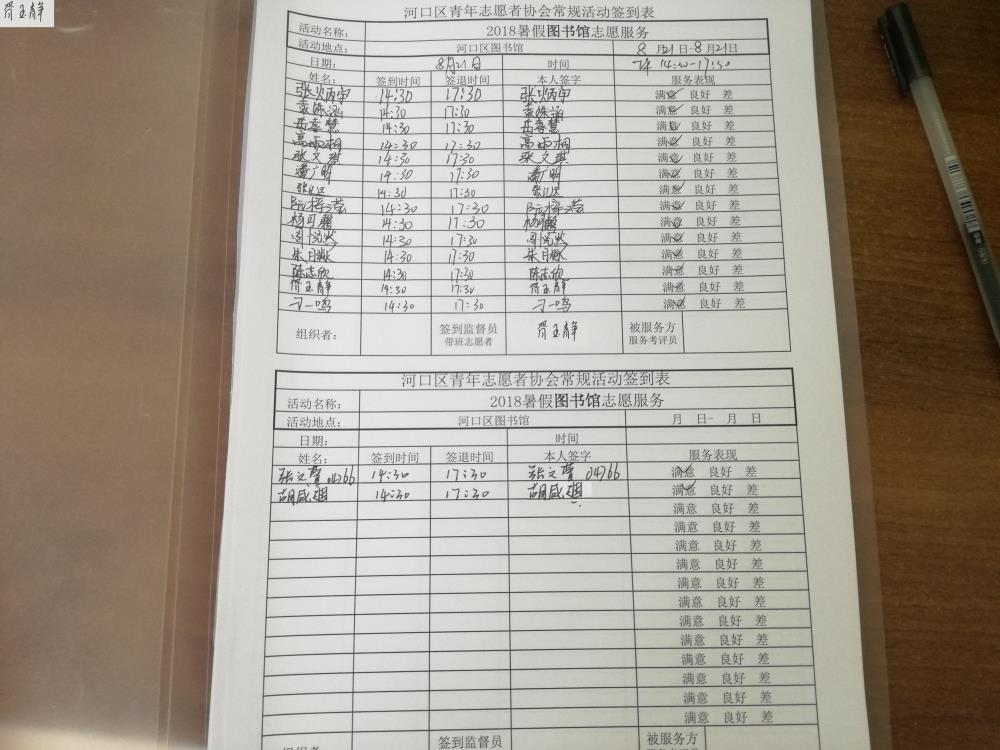 胥玉静
河口区青年志愿者协会常规活动签到表
活动名称: 2018暑假图书馆志愿服务
活动地点: 河口区图书馆 8月21日-8月21日
日期: 8月21日 时间 14:30-17:30
姓名: 签到时间 签退时间 本人签字 服务表现
张炳宇 14:30 17:30 张炳宇 满意 良好 差
袁姝涵 14:30 17:30 袁姝涵 满意 良好 差
岳喜慧 14:30 17:30 岳喜慧 满意 良好 差
高雨桐 14:30 17:30 高雨桐 满意 良好 差
张文琪 14:30 17:30 张文琪 满意 良好 差
潘广明 14:30 17:30 潘广明 满意 良好 差
14:30 17:30 满意 良好 差
14:30 17:30 满意 良好 差
杨可馨 14:30 17:30 杨可馨 满意 良好 差
14:30 17:30 满意 良好 差
朱月淑 14:30 17:30 朱月淑 满意 良好 差
陈志欣 14:30 17:30 陈志欣 满意 良好 差
胥玉静 14:30 17:30 胥玉静 满意 良好 差
刁一鸣 14:30 17:30 刁一鸣 满意 良好 差
组织者: 签到监督员 胥玉静 被服务方
带班志愿者 服务考评员
河口区青年志愿者协会常规活动签到表
活动名称: 2018暑假图书馆志愿服务
活动地点: 河口区图书馆 月 日- 月 日
日期: 时间
姓名: 签到时间 签退时间 本人签字 服务表现
张文 04766 14:30 17:30 张文 04766 满意 良好 差
胡盛 14:30 17:30 胡盛 满意 良好 差
满意 良好 差
满意 良好 差
满意 良好 差
满意 良好 差
满意 良好 差
满意 良好 差
满意 良好 差
满意 良好 差
满意 良好 差
满意 良好 差
满意 良好 差
满意 良好 差
签到监督员 被服务方